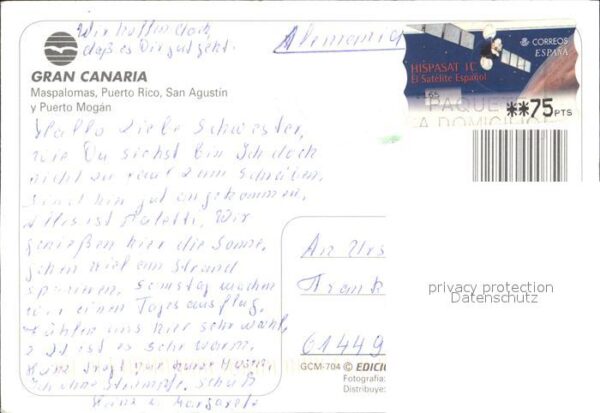 Wir hoffen doch,
daß es Dir gut geht.
Alemania
CORREOS
ESPAÑA
HISPASAT 1C
El Satélite Español
PAQUETE
A DOMICILIO
**75 PTS
GRAN CANARIA
Maspalomas, Puerto Rico, San Agustín
y Puerto Mogán
Hallo Liebe Schwester,
wie Du siehst bin Ich doch
nicht zu faul zum Schreiben,
Sind hier gut angekommen,
Alles ist Paletti, Wir
genießen hier die Sonne,
gehen viel am Strand
spazieren, Samstag machen
wir einen Tagesausflug,
Fühlen uns hier sehr wohl,
es ist sehr warm,
Heinz trägt nur kurze Hosen,
Ich ohne Strümpfe,
Heinz u. Margarete
An Urs
Frank
61449
privacy protection
Datenschutz
GCM-704 © EDICIO
Fotografía:
Distribuye: